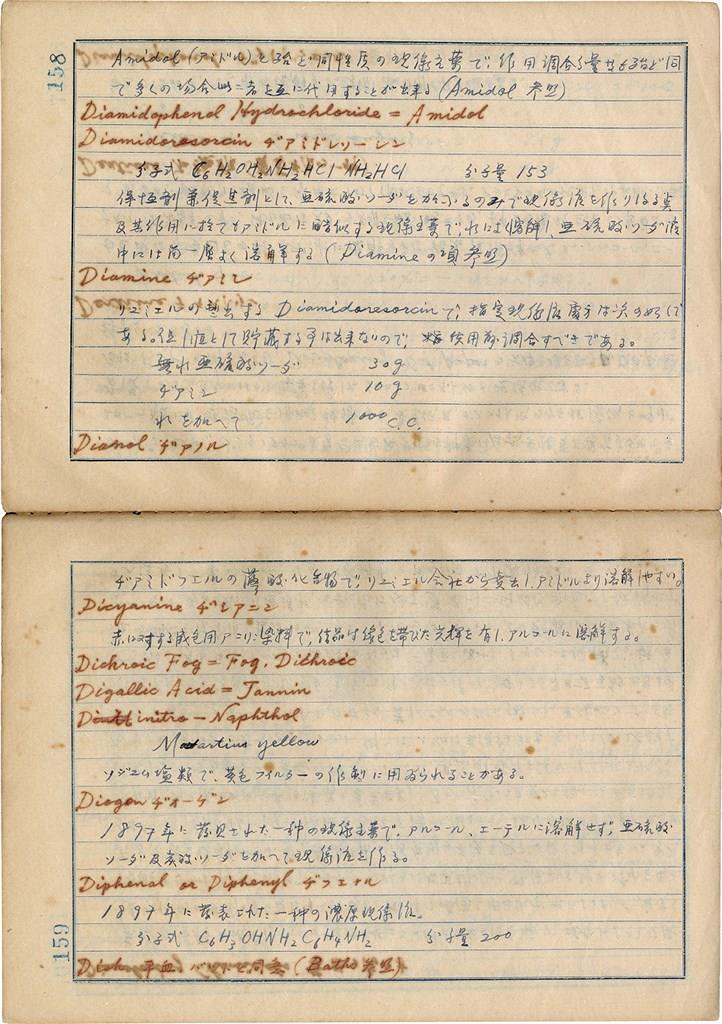 158
Amidol (アミドル) と殆ど同性質の現像主薬で、作用調合分量等も殆ど同
で多くの場合此二者を互に代用することが出来る (Amidol 参照)
Diamidophenol Hydrochloride = Amidol
Diamidoresorcin ヂアミドレゾーシン
分子式 C6H2OH2NH2HCl NH2HCl 分子量 153
保恒剤兼促進剤として、亜硫酸ソーダを加へるのみで現像液を作り得る
及其作用に於てもアミドルに酷似する現像主薬で、水によく溶解し、亜硫酸ソーダ液
中には尚一層よく溶解する (Diamineの項参照)
Diamine ヂアミン
リユミエルの Diamidoresorcin で、指定現像液處方は次の如くで
ある。但し液として貯蔵する事は出来ないので、使用前調合すべきである。
無水亜硫酸ソーダ 30g
ヂアミン 10g
水を加へて 1000 c.c.
Dianol ヂアノル
ヂアミドフエノルの 化合物で、リユミエル会社から賣出し、アミドルより溶解しやすい。
Dicyanine ヂシアニン
赤に対する感色用アニリン染料で、結晶は緑色を帯びた光輝を有し、アルコールに溶解する。
Dichroic Fog = Fog. Dichroic
Digallic Acid = Tannin
Dinitro-Naphthol
Martius yellow
ソジユム塩類で、黄色フイルターの作製に用ゐられることがある。
Diogen ヂオーゲン
1897年に発見された一種の現像主薬で、アルコール、エーテルに溶解せず、亜硫酸
ソーダ及炭酸ソーダを加へて現像液を作る。
Diphenal or Diphenyl ヂフエナル
1897年に発表された一種の濃厚現像液。
分子式 C6H3OHNH2C6H4NH2 分子量 200
Dish 平皿、バットと同意 (Baths 参照)
159